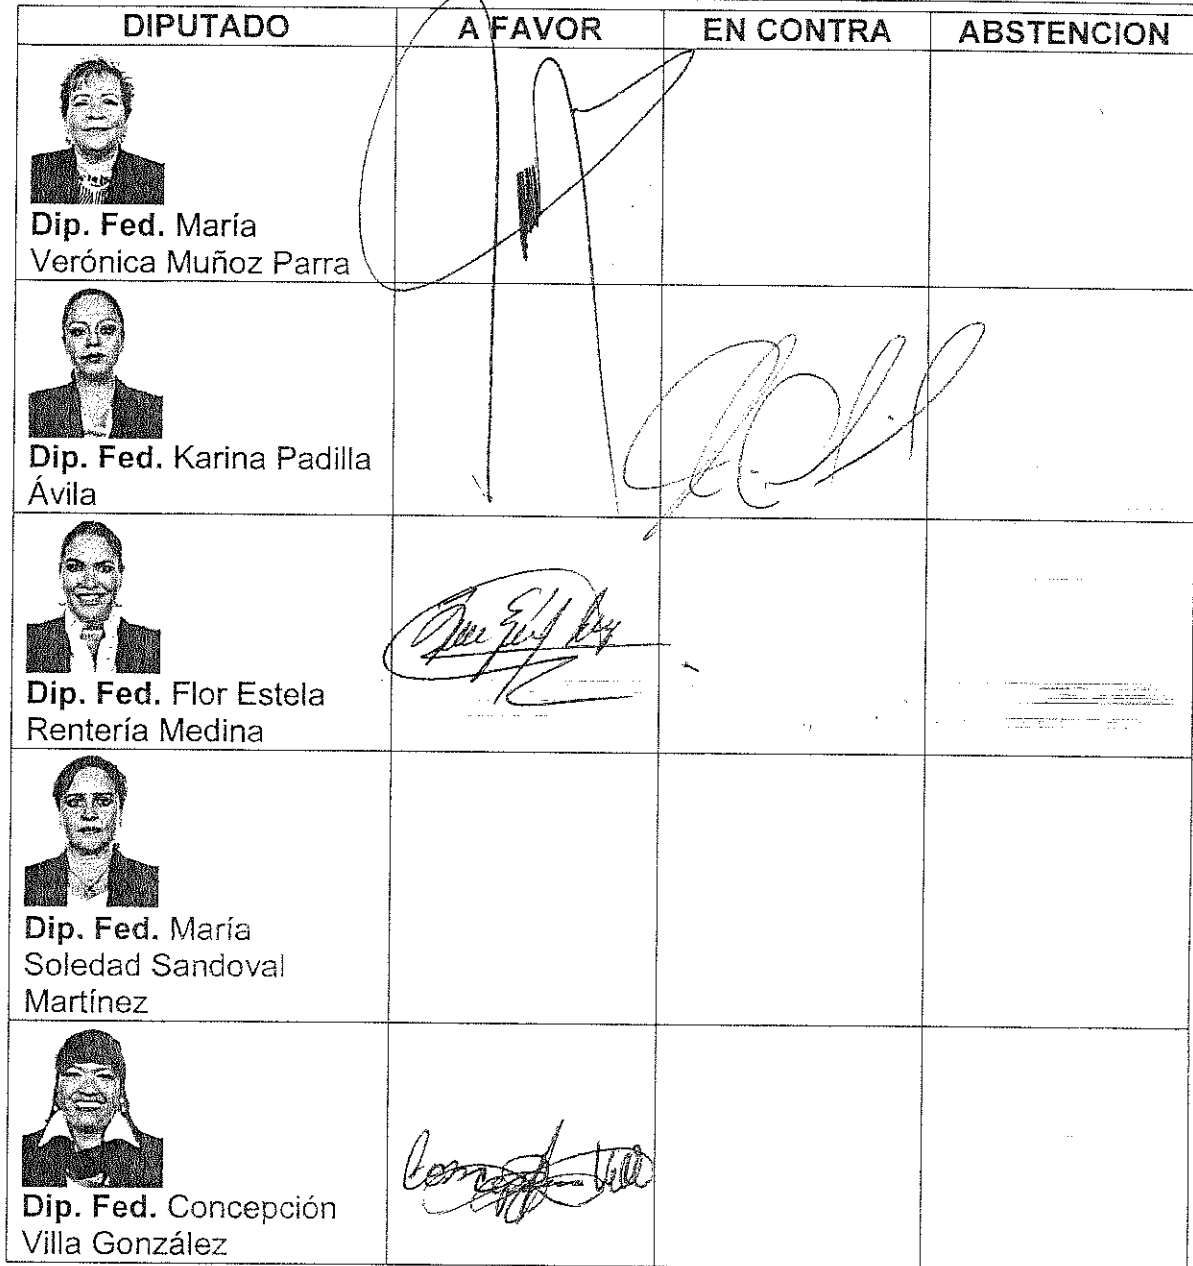 DIPUTADO A FAVOR EN CONTRA ABSTENCION
Dip. Fed. María
Verónica Muñoz Parra
Dip. Fed. Karina Padilla
Ávila
Dip. Fed. Flor Estela
Rentería Medina
Dip. Fed. María
Soledad Sandoval
Martínez
Dip. Fed. Concepción
Villa González